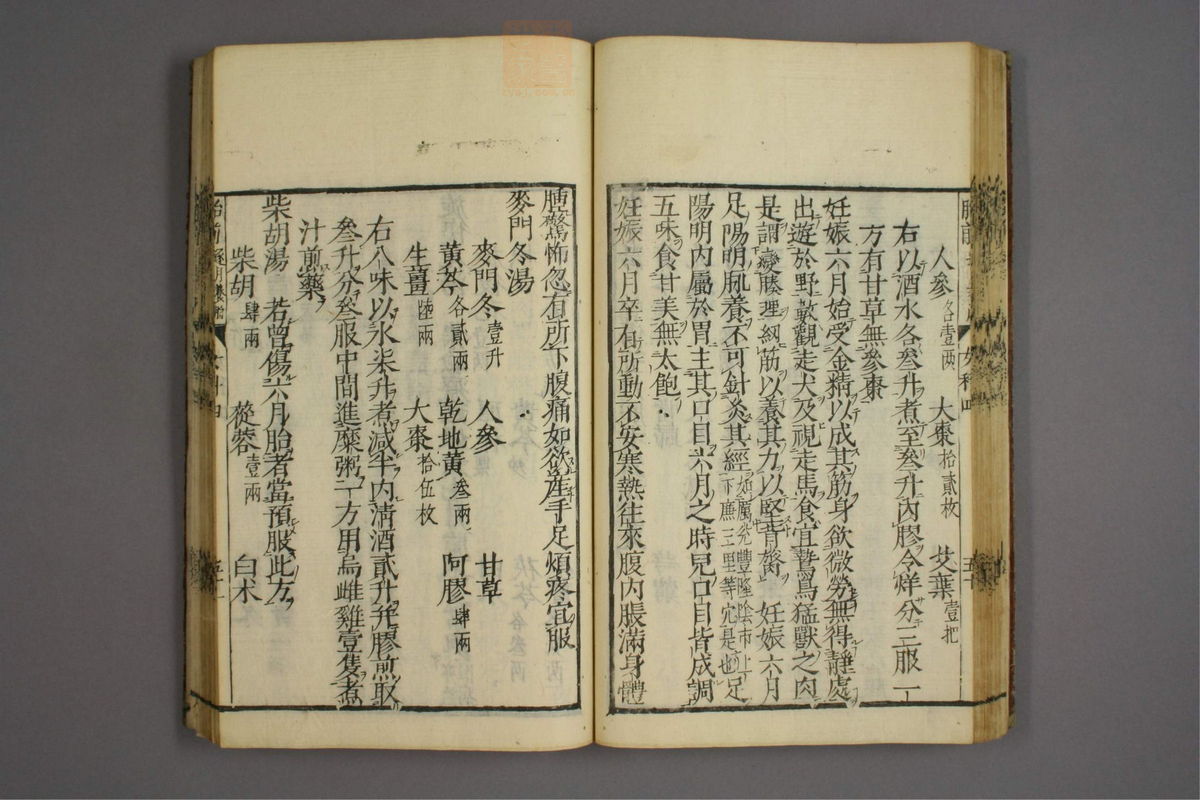 人參各壹兩　大棗拾貳枚　艾葉壹把
右以酒水各叁升煮至叁升內膠令烊分三服一
方有甘草無參棗
妊娠六月始受金精以成其筋身欲微勞無得靜處
出遊於野數觀走犬及視走馬食宜鷙鳥猛獸之肉
是謂變腠理紉筋以養其力以堅背膂　妊娠六月
足陽明脈養不可針灸其經如厲兌豐隆陰市上下廉三里等穴是也足
陽明內屬於胃主其口目六月之時兒口目皆成調
五味食甘美無太飽
妊娠六月卒有所動不安寒熱往來腹內脹滿身體
腫驚怖忽有所下腹痛如欲產手足煩疼宜服
麥門冬湯
麥門冬壹升　人參　甘草
黃芩各貳兩　乾地黃叁兩　阿膠肆兩
生薑陸兩　大棗拾伍枚
右八味以水柒升煮減半內清酒貳升并膠煎取
叁升分叁服中間進糜粥一方用烏雌雞壹隻煮
汁煎藥
柴胡湯　若曾傷六月胎者當預服此方
柴胡肆兩　蓯蓉壹兩　白朮